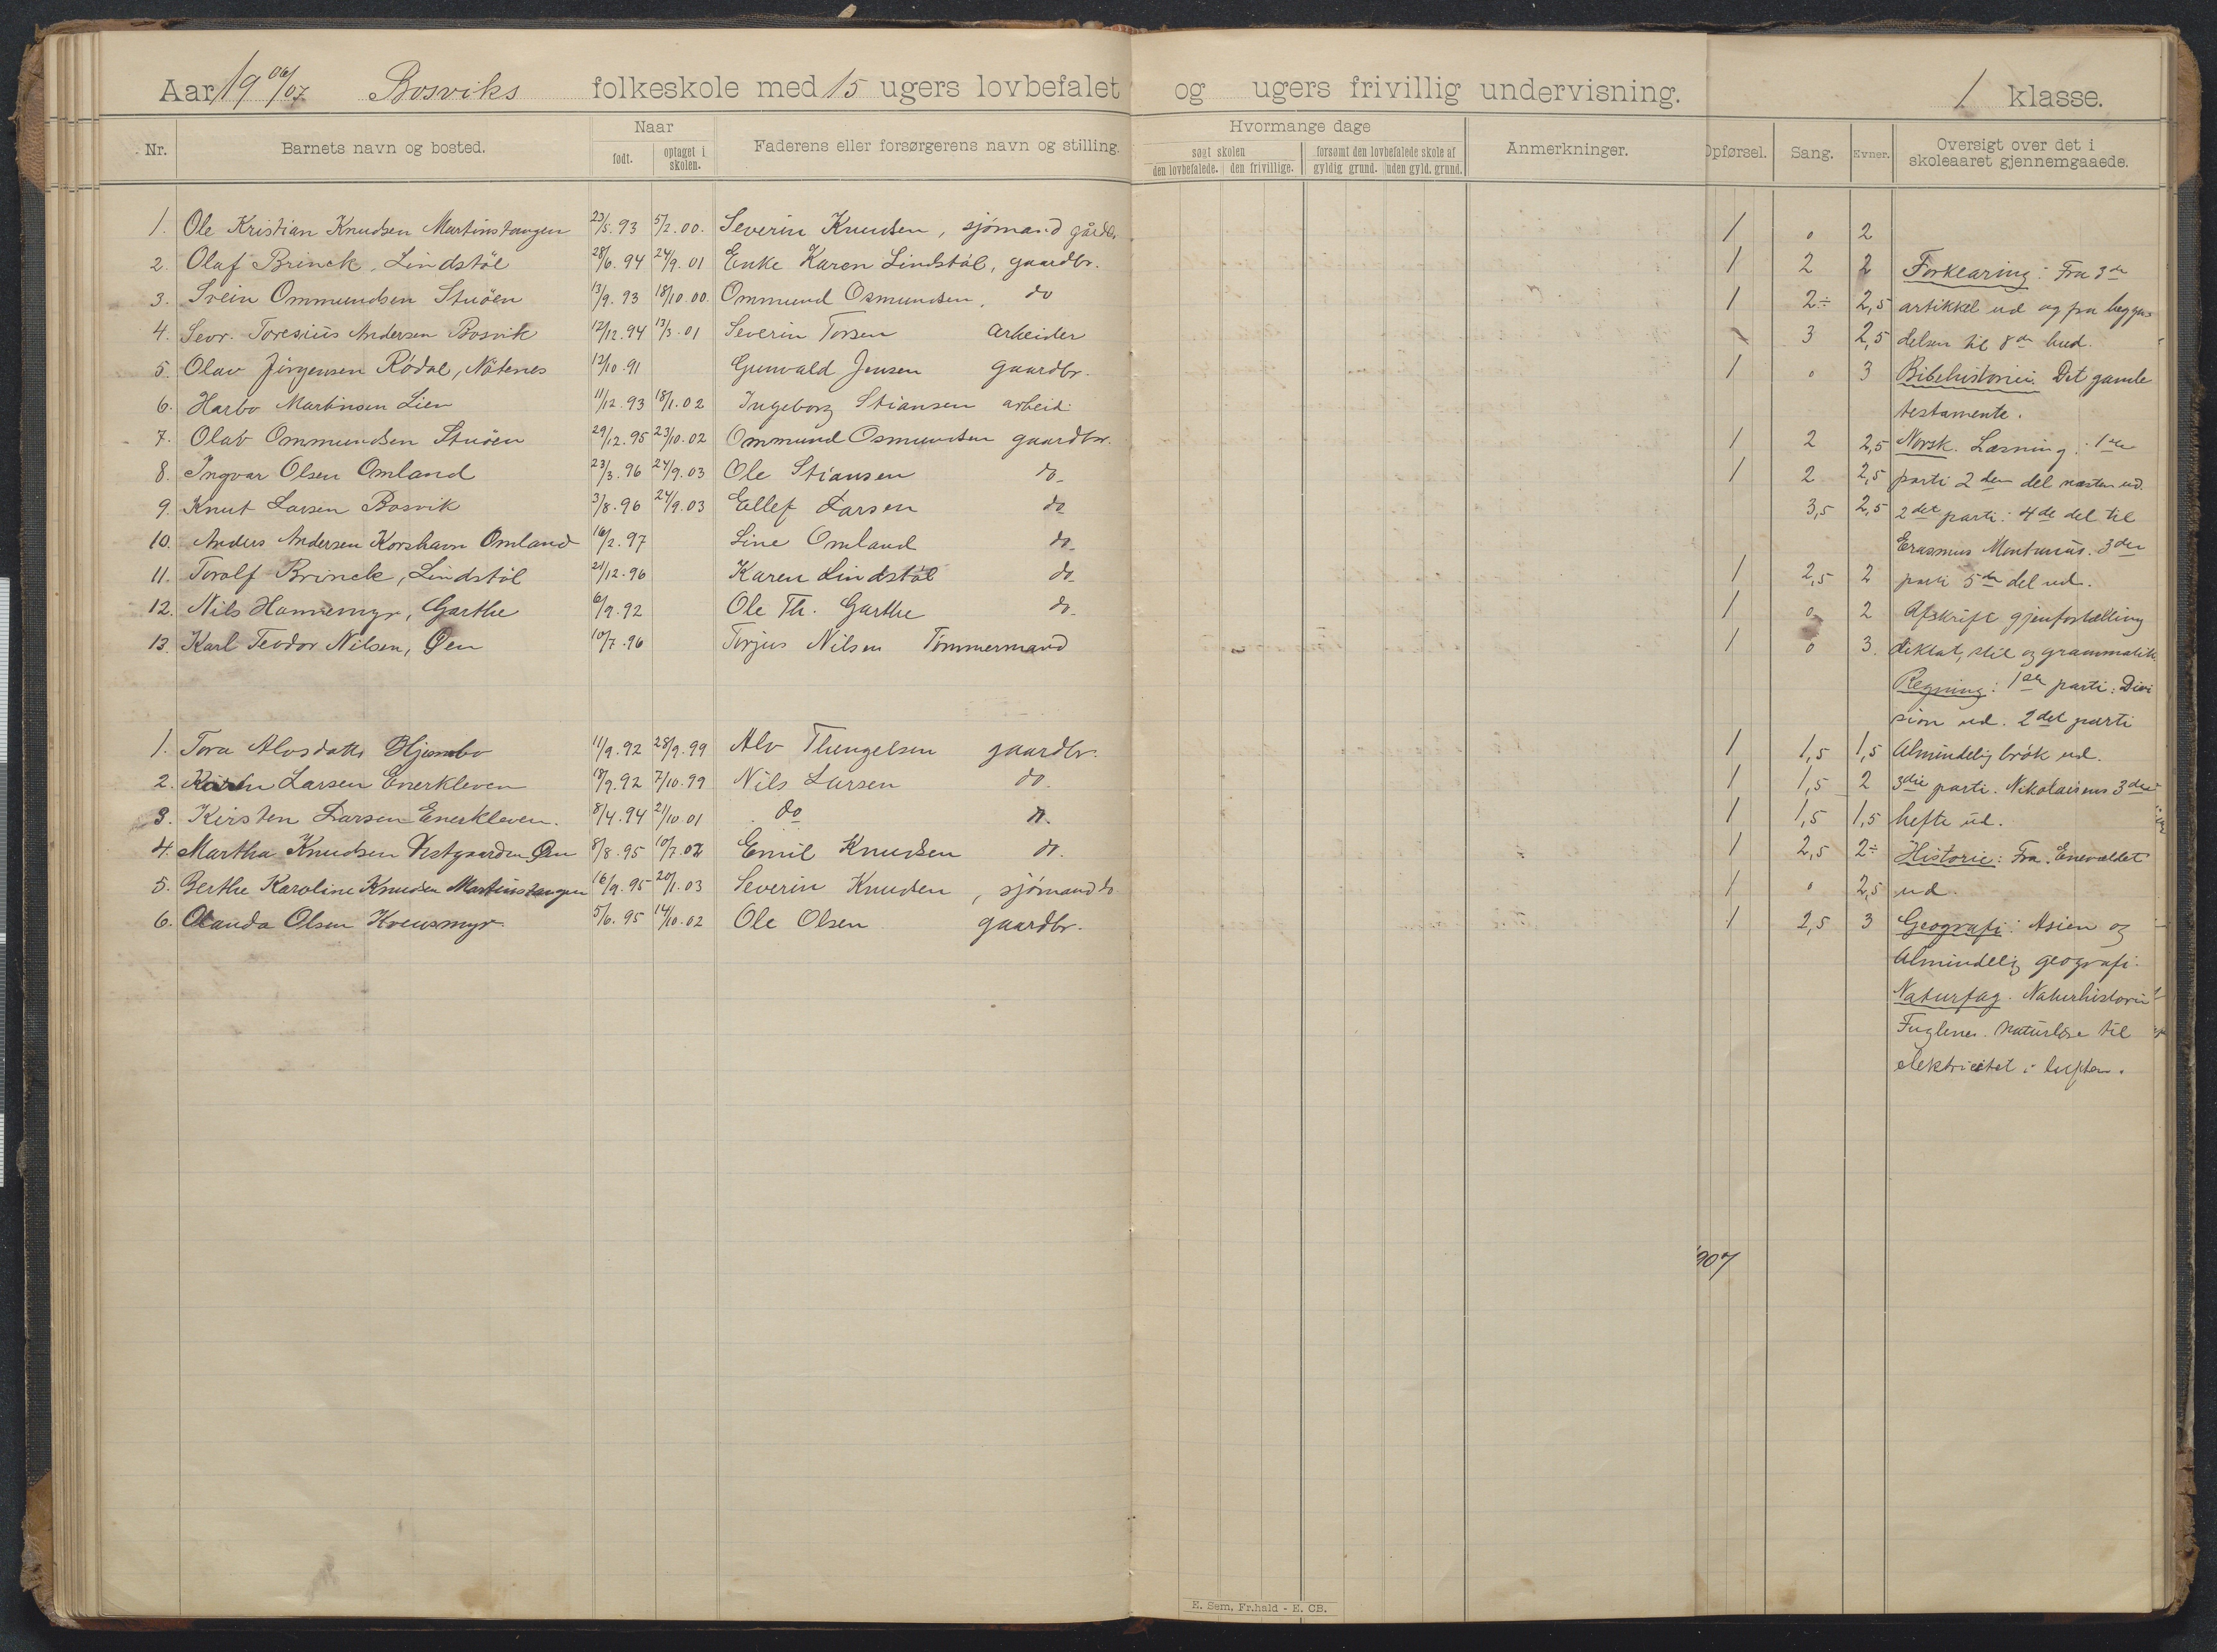 Aar 19 06/07 Bosviks folkeskole med 15 ugers lovbefalet og ugers frivillig undervisning. 1 klasse.
Nr. Barnets navn og bosted. Naar født. optaget i skolen. Faderens eller forsørgerens navn og stilling. Hvormange dage søgt skolen den lovbefalede. den frivillige. forsømt den lovbefalede skole af gyldig grund. uden gyld. grund. Anmerkninger. Opførsel. Sang. Evner. Oversigt over det i skoleaaret gjennemgaaede.
1. Ole Kristian Knudsen Martinstangen 23/5.93 5/2.00. Severin Knudsen, sjømand gårdbr. 1 0 2
2. Olaf Brinck, Lindstøl 28/6.94 24/9.01 Enke Karen Lindstøl, gaardbr. 1 2 2 Forklaring: Fra 3die
3. Svein Ommundsen Stuøen 13/9.93 18/10.00. Ommund Osmundsen, do 1 2÷ 2,5 artikkel ud og fra begyn
4. Sevr. Toresius Andersen Bosvik 12/12.94 13/3.01 Severin Torsen arbeider 3 2,5 delsen til 8de bud.
5. Olav Jørgensen Rødal, Nøtenes 12/10.91 Gunvald Jensen gaardbr. 1 0 3 Bibelhistorie: Det gamle
6. Harbo Martinsen Lien 11/12.93 18/1.02 Ingeborg Stiansen arbeid. testamente.
7. Olav Ommundsen Stuøen 29/12.95 23/10.02 Ommund Osmundsen gaardbr. 1 2 2,5 Norsk. Læsning: 1ste
8. Ingvar Olsen Omland 23/3.96 24/9.03 Ole Stiansen do 1 2 2,5 parti 2den del næsten ud.
9. Knut Larsen Bosvik 3/8.96 24/9.03 Ellef Larsen do 3,5 2,5 2det parti: 4de del til
10. Anders Andersen Korshavn Omland 16/2.97 Line Omland do Erasmus Montanus. 3die
11. Torolf Brinck, Lindstøl 21/12.96 Karen Lindstøl do 1 2,5 2 parti 5te del ud.
12. Nils Hammemyr, Garthe 6/9.92 Ole Th. Garthe do 1 0 2 Afskrift gjenfortælling
13. Karl Teodor Nilsen, Øen 10/7.96 Torjus Nilsen Tømmermand 1 0 3. diktat, stil og grammatik
Regning: 1ste parti: Divi
sion ud. 2det parti
1. Tora Alvsdatter 11/9.92 28/9.99 Alv Thengelsen gaardbr. 1 1,5 1,5 Almindelig brøk ud.
2. Karen Larsen Enerkleven 18/9.92 7/10.99 Nils Larsen do. 1 1,5 2 3die parti. Nikolaisens 3die
3. Kirsten Larsen Enerkleven. 8/4.94 2/10.01 do do. 1 1,5 1,5 hefte ud.
4. Martha Knudsen Vestgaarden Øen 8/8.95 10/7.02 Emil Knudsen do. 1 2,5 2÷ Historie: Fra Enevældet
5. Berthe Karoline Knudsen Martinstangen 16/9.95 20/1.03 Severin Knudsen, sjømand do 1 0 2,5 ud.
6. Olanda Olsen 5/6.95 14/10.02 Ole Olsen gaardbr. 1 2,5 3 Geografi: Asien og
Almindelig geografi.
Naturfag. Naturhistorie
Fuglene. Naturlære til
elektricitet i luften.
907
E. Sem, Fr.hald - E. CB.